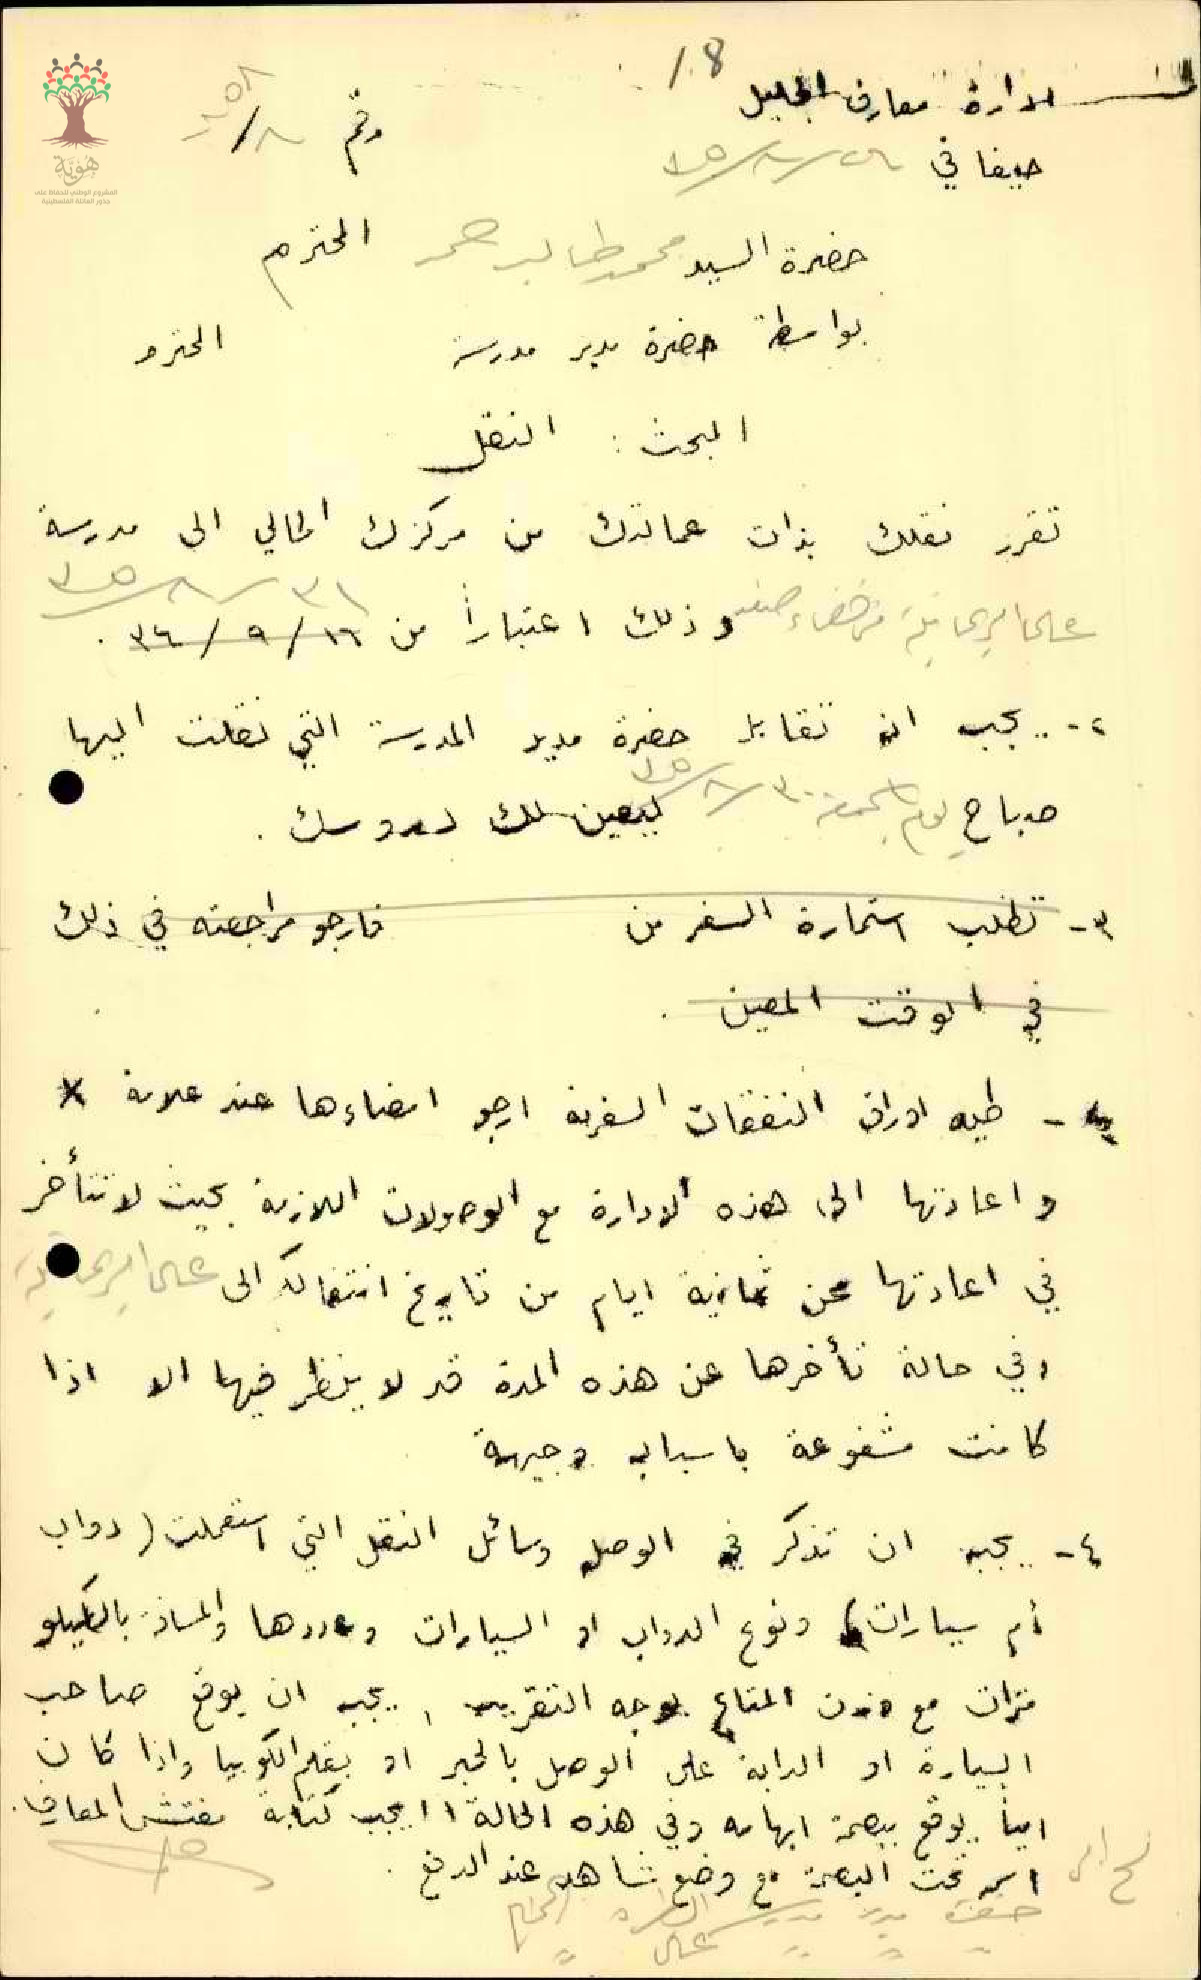 18/
لادارة معارف الجليل
حيفا في ٢٦/٨/٣٥
رقم ٨/
حضرة السيد محمد طالب حمد المحترم
بواسطة حضرة مدير مدرسة المحترم
البحث : النقل
تقرر نقلك بذات عمالتك من مركزك الحالي الى مدرسة
٣١/٨/٣٥
علما الريحانية من قضاء صفد وذلك اعتباراً من ١٦/٩/٣٤ .
٢- يجب ان تقابل حضرة مدير المدرسة التي نقلت اليها
صباح يوم الجمعة ٣٠/٨/٣٥ ليعين لك دروسك .
٣- تطلب استمارة السفر من فارجو مراجعته في ذلك
في الوقت المعين .
- طيه اوراق النفقات السفرية ارجو امضاءها عند علامة X
واعادتها الى هذه الادارة مع الوصولات اللازمة بحيث لا تتأخر
في اعادتها عن ثمانية ايام من تاريخ انتقالك الى علما الريحانية
وفي حالة تأخرها عن هذه المدة قد لا ينظر فيها الا اذا
كانت مشفوعة باسباب وجيهة
٤- يجب ان تذكر في الوصل وسائل النقل التي استعملت (دواب
أم سيارات) ونوع الدواب او السيارات وعددها والمسافة بالكيلو
مترات مع وزن المتاع بوجه التقريب ، يجب ان يوقع صاحب
السيارة او الدابة على الوصل بالحبر او بقلم الكوبيا واذا كان
امياً يوقع ببصمة ابهامه وفي هذه الحالة يجب كتابة
اسمه تحت البصمة مع وضع شاهد عند الدفع .
مفتش المعارف
حضرة مدير مدرسة
هوية
المشروع الوطني للحفاظ على
جذور العائلة الفلسطينية